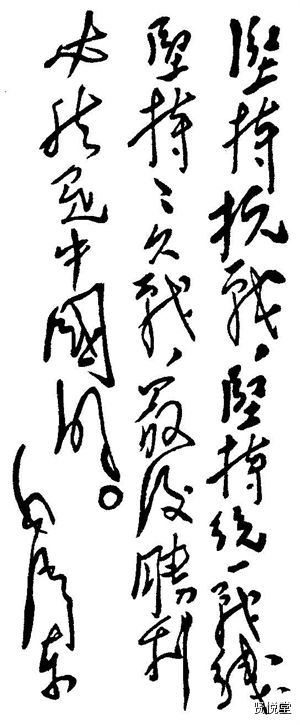 堅持抗戰、堅持統一戰綫
堅持〻久戰、最後勝利
必然是中國的。
毛澤東
贤悦堂